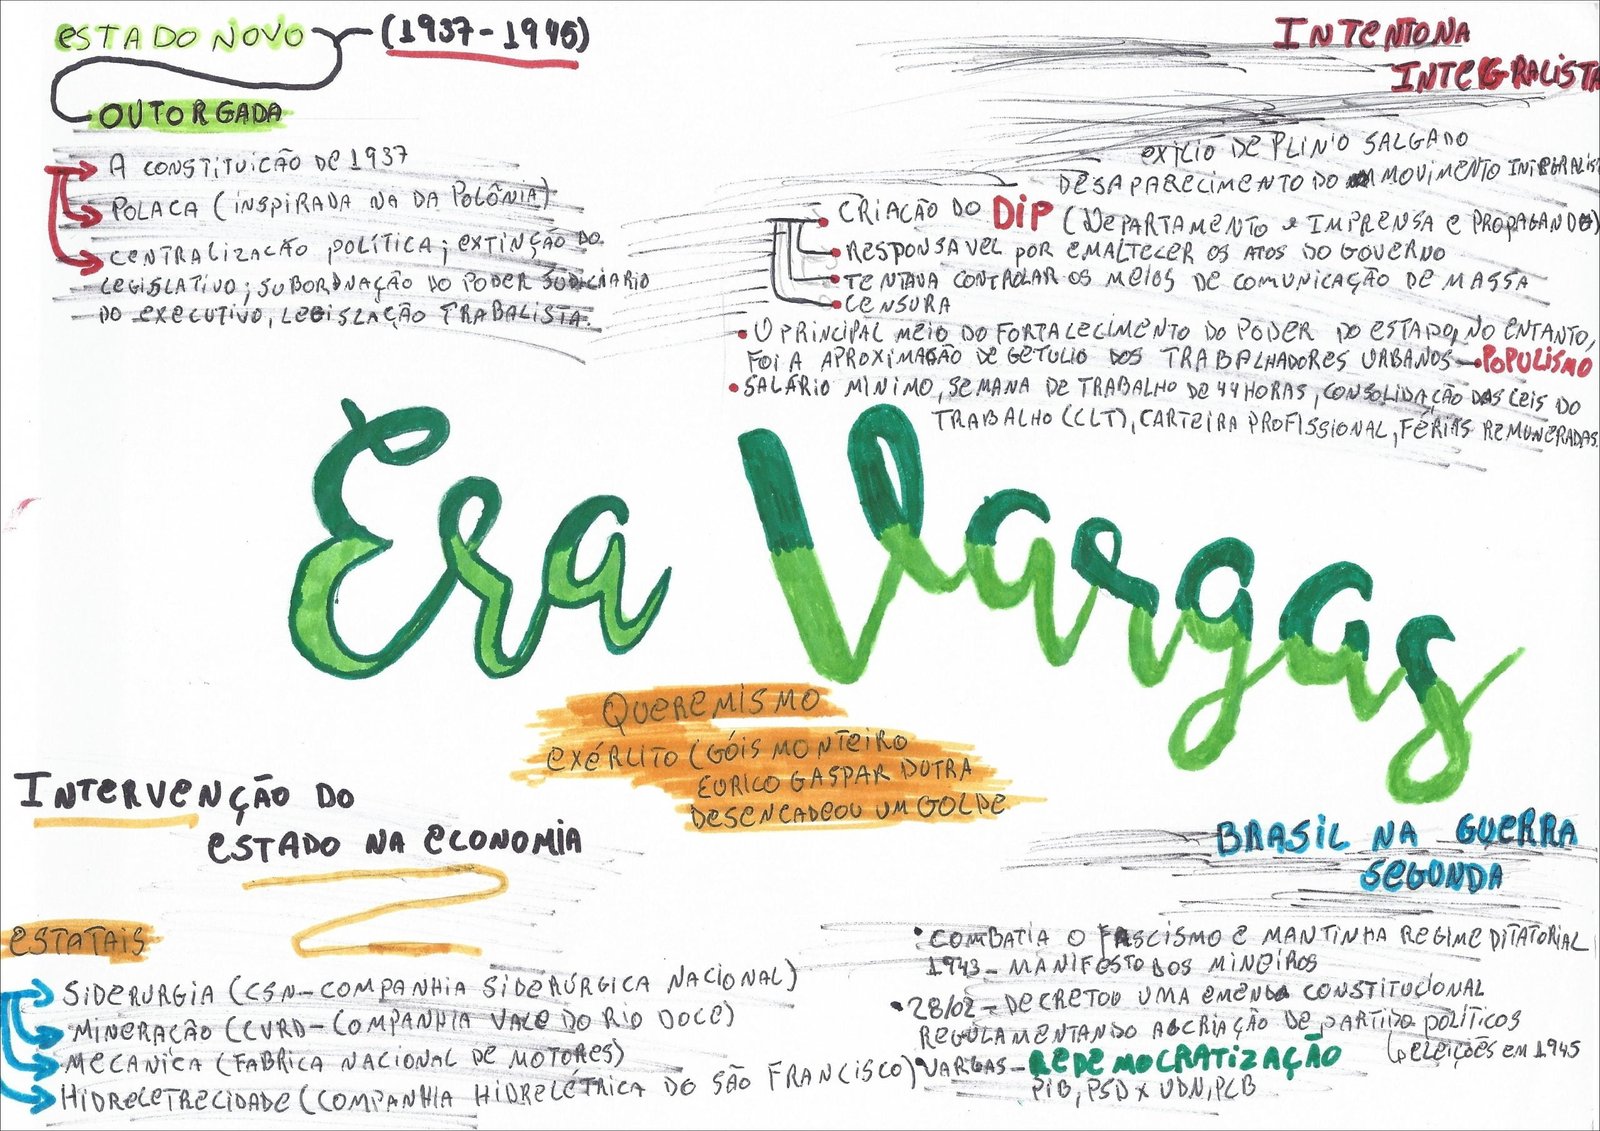 ESTADO NOVO (1937-1945)
OUTORGADA
A CONSTITUIÇÃO DE 1937
POLACA (INSPIRADA NA DA POLÔNIA)
CENTRALIZAÇÃO POLÍTICA; EXTINÇÃO DO
LEGISLATIVO; SUBORDNAÇÃO DO PODER JUDICIARIO
DO EXECUTIVO, LEGISLAÇÃO TRABALISTA.
INTENTONA
INTEGRALISTA
EXILIO DE PLINIO SALGADO
DESAPARECIMENTO DO MOVIMENTO INTEGRALIS
CRIAÇÃO DO DIP (DEPARTAMENTO e IMPRENSA E PROPAGANDA)
RESPONSAVEL POR EMALTECER OS ATOS DO GOVERNO
TENTAVA CONTROLAR OS MEIOS DE COMUNICAÇÃO DE MASSA
CENSURA
O PRINCIPAL MEIO DO FORTALECIMENTO DO PODER DO ESTADO, NO ENTANTO,
FOI A APROXIMAÇÃO DE GETULIO DOS TRABALHADORES URBANOS - POPULISMO
SALÁRIO MINIMO, SEMANA DE TRABALHO DE 44 HORAS, CONSOLIDAÇÃO DAS LEIS DO
TRABALHO (CLT), CARTEIRA PROFISSIONAL, FÉRIAS REMUNERADAS
Era Vargas
QUEREMISMO
EXÉRCITO (GÓIS MONTEIRO
EURICO GASPAR DUTRA
DESENCADEOU UM GOLPE
INTERVENÇÃO DO
ESTADO NA ECONOMIA
ESTATAIS
SIDERURGIA (CSN-COMPANHIA SIDERÚRGICA NACIONAL)
MINERAÇÃO (CVRD-COMPANHIA VALE DO RIO DOCE)
MECANICA (FABRICA NACIONAL DE MOTORES)
HIDRELETRECIDADE (COMPANHIA HIDRELÉTRICA DO SÃO FRANCISCO)
BRASIL NA GUERRA
SEGUNDA
COMBATIA O FASCISMO E MANTINHA REGIME DITATORIAL
1943- MANIFESTO DOS MINEIROS
28/02-DECRETOU UMA EMENDA CONSTITUCIONAL
REGULAMENTANDO A CRIAÇÃO DE PARTIDO POLÍTICOS
ELEIÇÕES EM 1945
VARGAS-REDEMOCRATIZAÇÃO
PIB, PSD X UDN, PCB